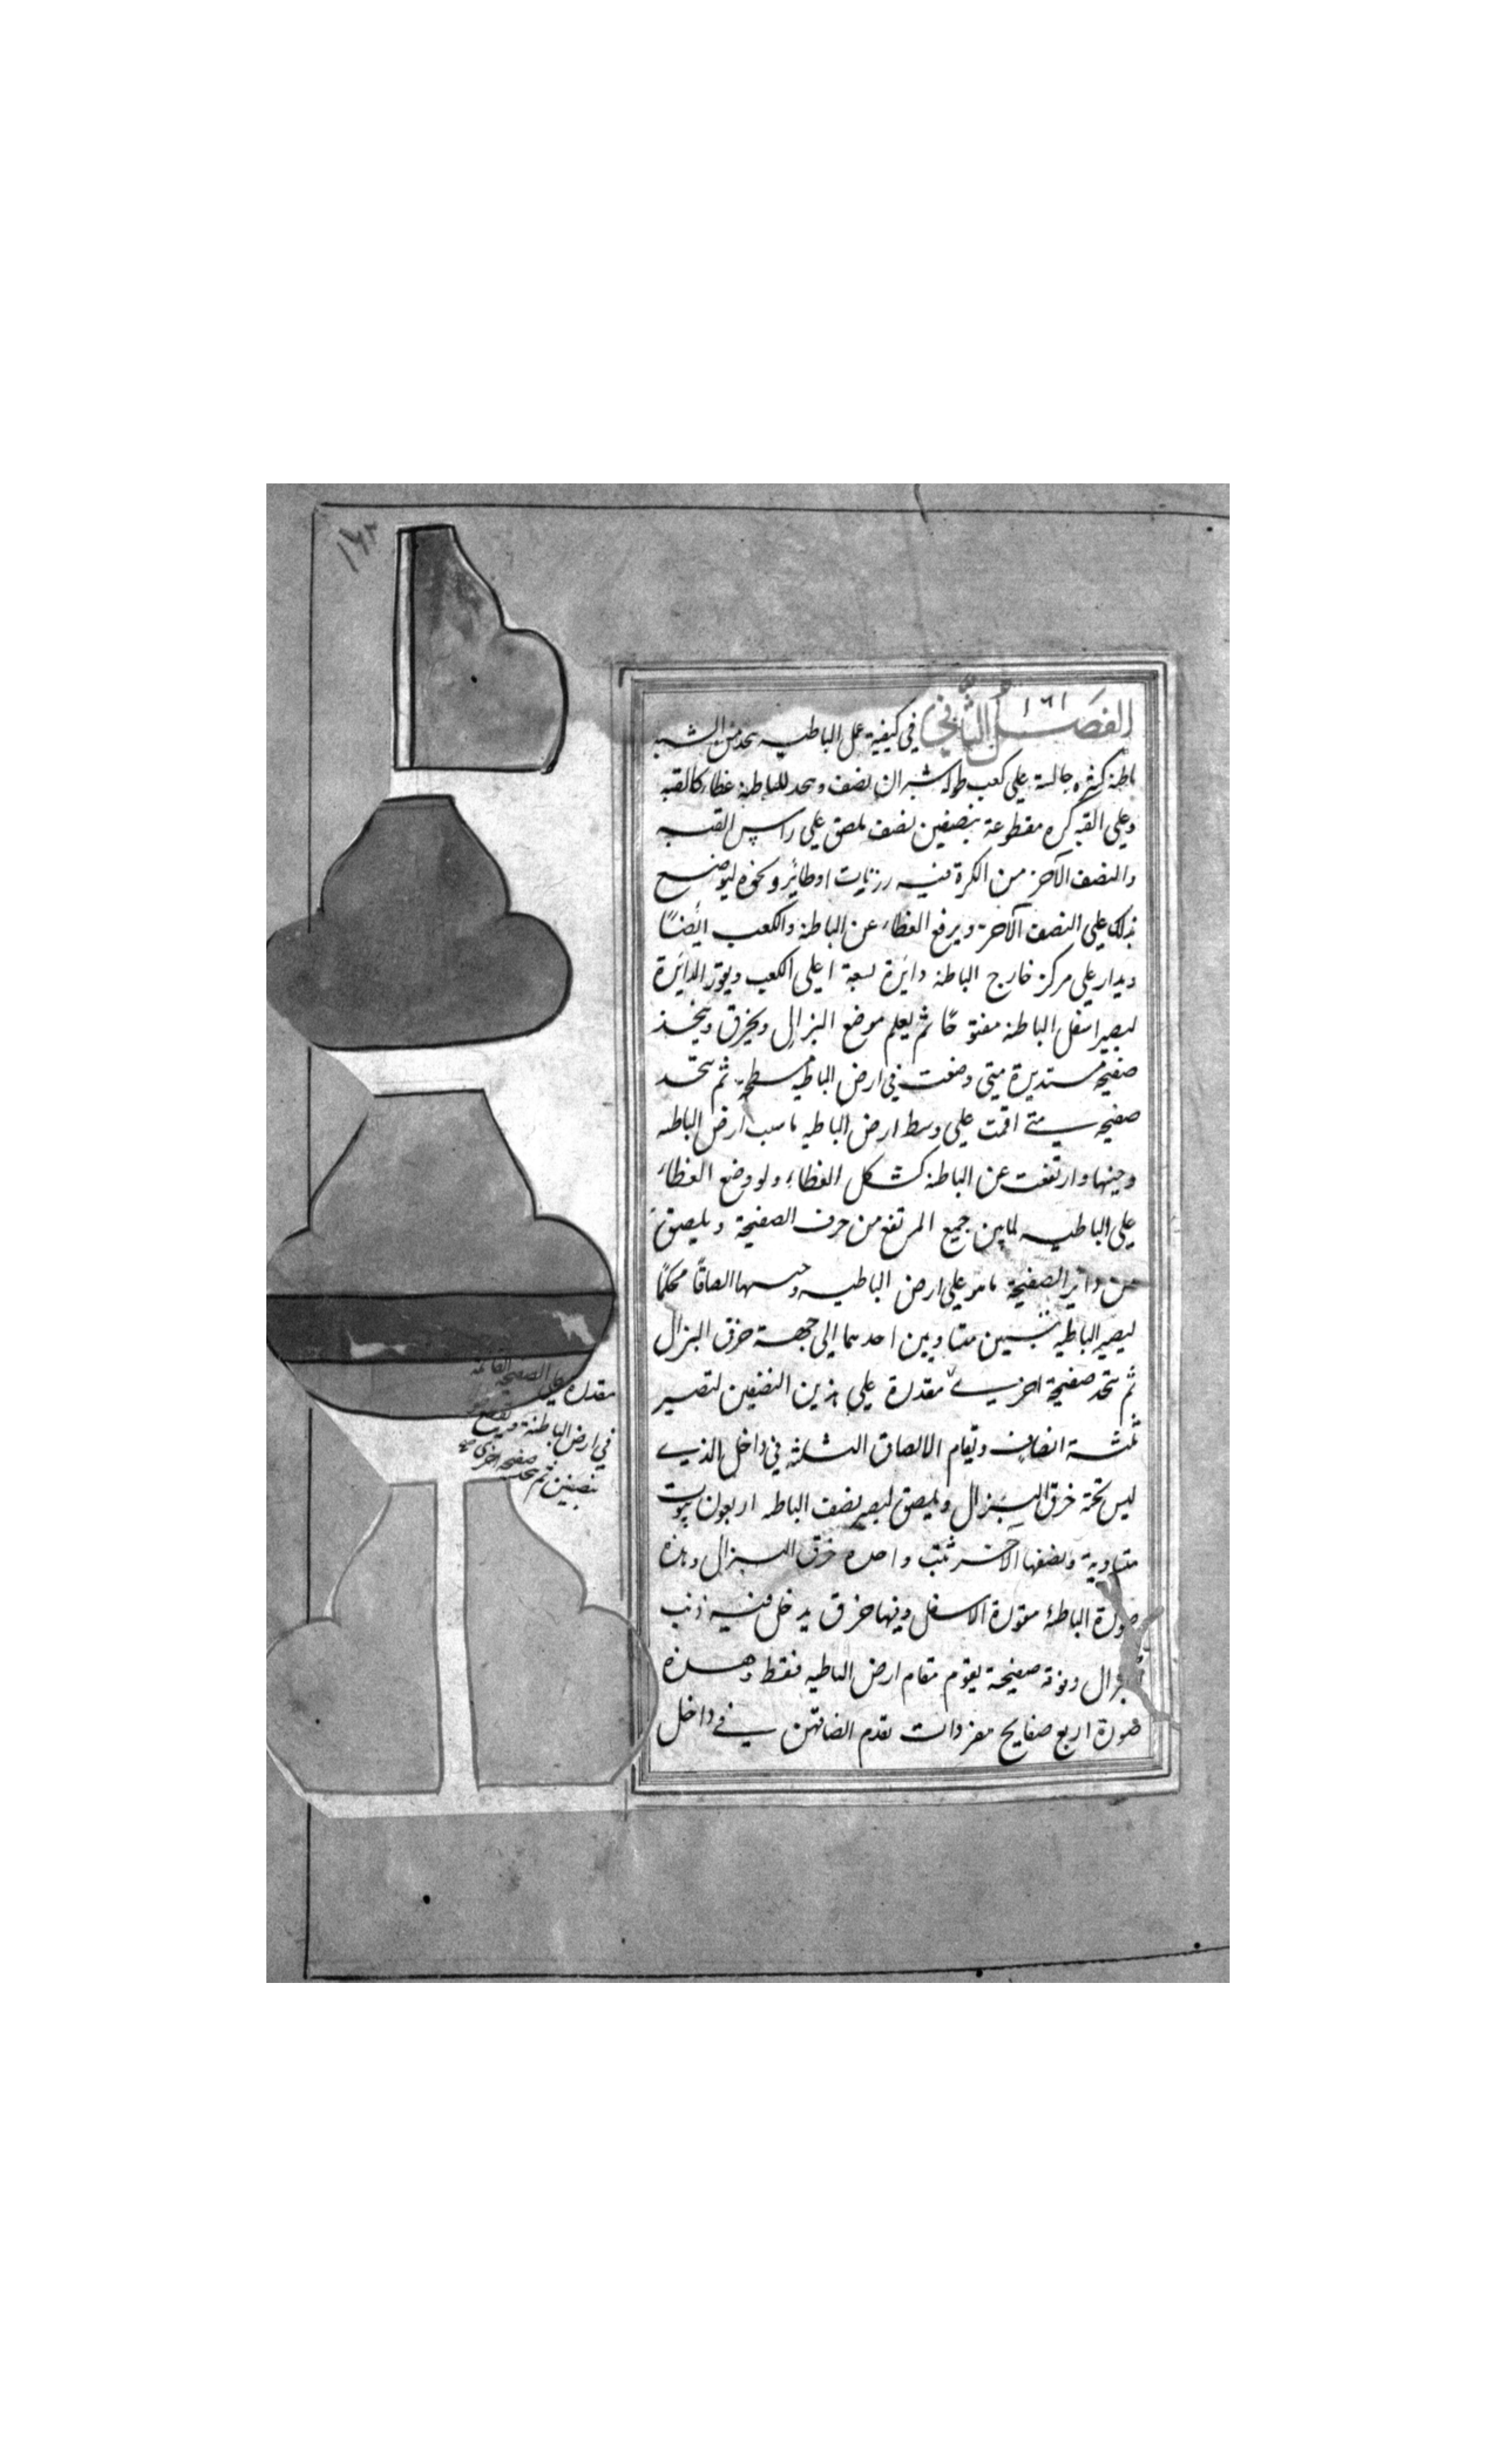 ١٦١
الفصل الثاني في كيفية عمل الباطيه يتخذ من الشبه
باطية كبيره جالسة على كعب طوله شبران ونصف ويتخذ للباطية غطاء كالقبه
وعلى القبه كره مقطوعة بنصفين نصف ملصق على راس القبه
والنصف الآخر من الكرة فيه رزبات او طائر ونحوه ليوضع
ذلك على النصف الآخر ويرفع الغطاء عن الباطية والكعب ايضًا
ويدار على مركز خارج الباطية دائرة لسعة اعلى الكعب ويقور الدائرة
ليصير اسفل الباطية مفتوحًا ثم يعلم موضع البزال ويخرق ويتخذ
صفيحة مستديرة متى وضعت في ارض الباطيه مسطحة ثم يتخذ
صفيحه متى اقمت على وسط ارض الباطيه ارض الباطيه
وارتفعت عن الباطية كشكل الغطاء ولو وضع الغطاء
على الباطيه جميع المرتفع من حرف الصفيحة ويلصق
من دائر الصفيحة على ارض الباطيه الصاقًا محكمًا
ليصير الباطيه متساويين احدهما الى جهة خرق البزال
ثم يتخذ صفيحة اخرى مقدرة على هذين النصفين لتصير
ثلثة انصاف ويقام الالصاق الثلثة في داخل الذي
ليس تحته خرق البزال ويلصق ليصير نصف الباطيه اربعون بيوت
متساوية ونصفها الآخر بيت واحده خرق البزال وهذه
صورة الباطية مقورة الاسفل وفيها خرق يدخل فيه ذنب
بزال وفوقه صفيحة يقوم مقام ارض الباطيه فقط وهذه
صورة اربع صفايح مفردات تقدم الصاقهن في داخل
الصفيحه القائمه
مقدرة على
في ارض الباطنة
بنصفين ثم يتخذ صفيحة اخرى